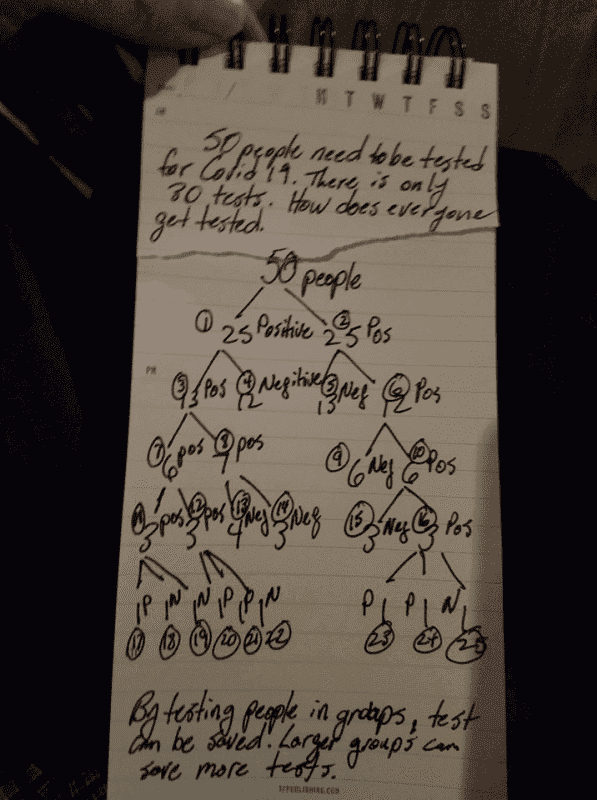 M T W T F S S
50 people need to be tested
for Covid 19. There is only
30 tests. How does everyone
get tested.
50 people
① 25 Positive ② 25 Pos
③ 13 Pos ④ 12 Negitive ⑤ 13 Neg ⑥ 12 Pos
PM
⑦ 6 pos ⑧ 7 pos ⑨ 6 Neg ⑩ 6 Pos
⑪ 3 pos ⑫ 3 pos ⑬ 4 Neg ⑭ 3 Neg ⑮ 3 Neg ⑯ 3 Pos
P N N P P N P P N
⑰ ⑱ ⑲ ⑳ ㉑ 22 ㉓ ㉔ ㉕
By testing people in groups, test
can be saved. Larger groups can
save more tests.